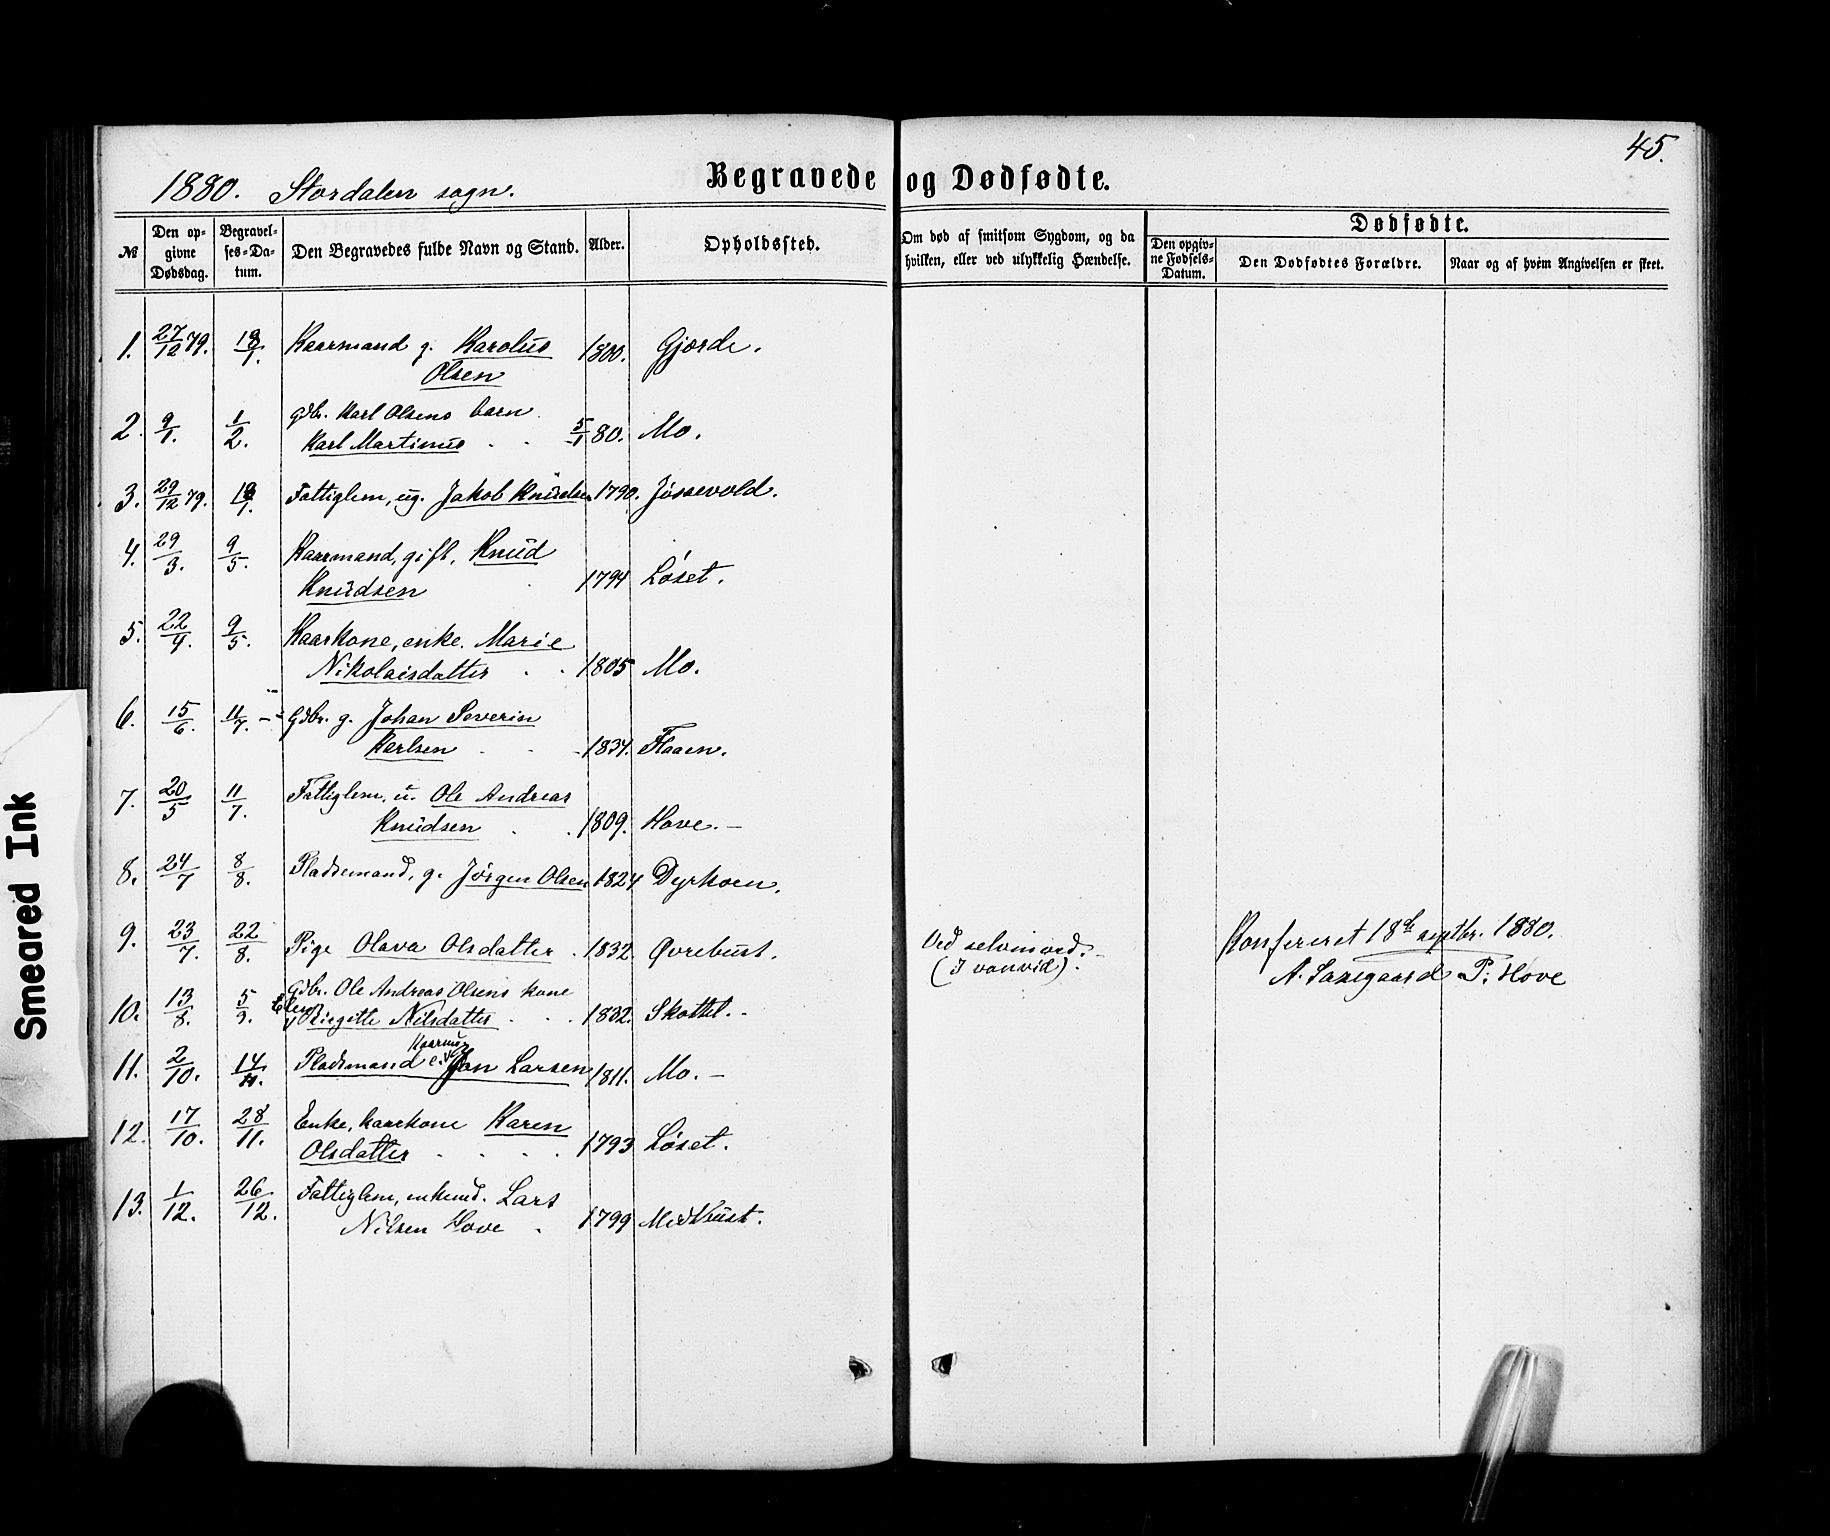 45.
1880. Stordalen sogn.
Begravede og Dødfødte.
№
Den op-
givne
Dødsdag.
Begravel-
ses-Da-
tum.
Den Begravedes fulde Navn og Stand.
Alder.
Opholdssted.
Om død af smitsom Sygdom, og da
hvilken, eller ved ulykkelig Hændelse.
Dødfødte.
Den opgiv-
ne Fødsels-
Datum.
Den Dødfødtes Forældre.
Naar og af hvem Angivelsen er skeet.
1. 27/12 79. 18/1. Kaarmand g. Karolus
Olsen 1800. Gjærde.
2. 9/1. 1/2. gdbr. Karl Olsens barn
Karl Martinus 5/1 80. Mo.
3. 29/12 79. Fattiglem, ug. Jakob Knudsen 1790. Jøssevold.
4. 29/3. 9/5. Kaarmand, gift, Knud
Knudsen 1794 Løset.
5. 22/4. 9/5. Kaarkone, enke. Marie
Nikolaisdatter 1805 Mo.
6. 15/6. 11/7. Gdbr. g. Johan Severin
Karlsen 1834. Flaaen.
7. 20/5 11/7. Fattiglem, u. Ole Andreas
Knudsen 1809. Hove.
8. 24/7 8/8. Pladsemand, g. Jørgen Olsen 1824 Dyrkorn.
9. 23/7. 22/8. Pige Olava Olsdatter 1832. Øvrebust. Ved selvmord.
(I vanvid).
Konfereret 18de septbr. 1880.
A. Saxegaard P. Hove
10. 13/8. 5/9. Gdbr. Ole Andreas Olsens kone
Elen Birgitte Nilsdatter 1832. Skottet.
11. 2/10. 14/11. Pladsmand Jon Larsen 1811. Mo.
12. 17/10. 28/11. Enke, kaarkone Karen
Olsdatter 1793 Løset.
13. 1/12. 26/12. Fattiglem, enkemd. Lars
Nilsen Hove 1799 Midtbust.
Smeared Ink